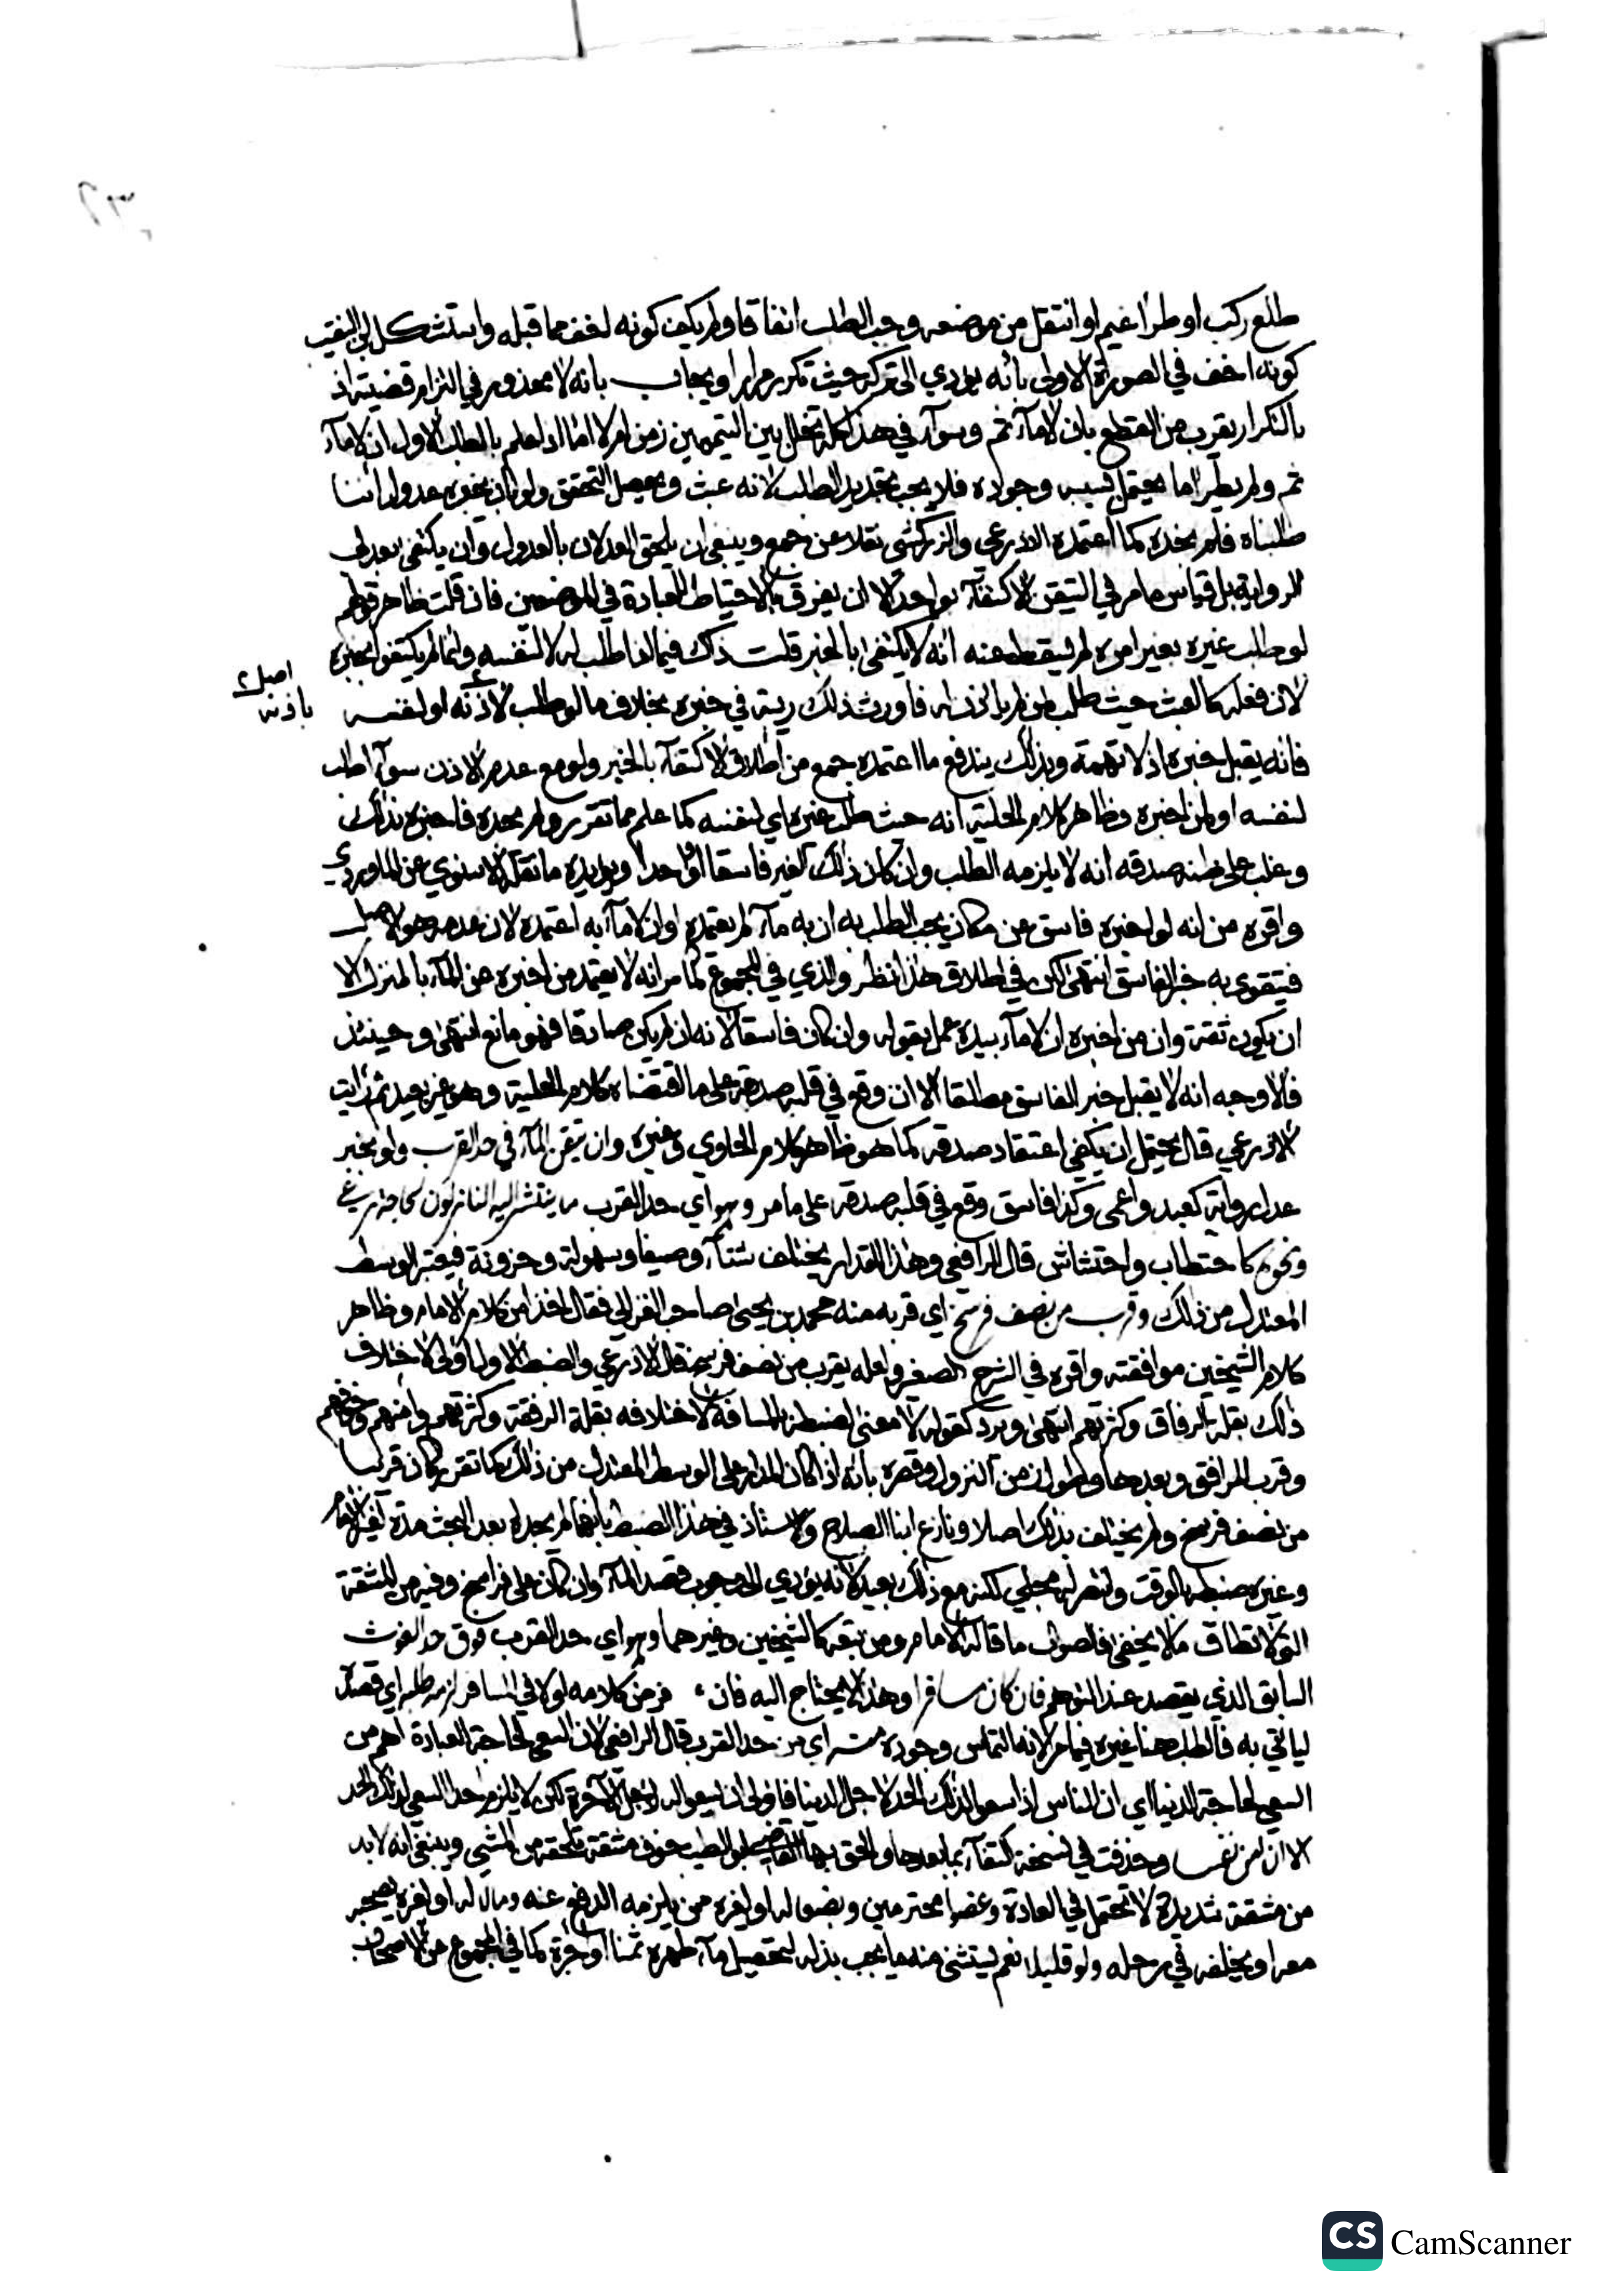 طلع ركب او طرا غيم او انتقل من موضعه وجب الطلب اتفاقا ولم يكن كونه اخف مما قبله واستشكل ابن النقيب
كونه اخف في الصورة الاولى بانه يؤدي الى تركه حيث تكرر مرارا ويجاب بانه لا محذور في التزام قضيته اذ
بالتكرار يقرب من القطع بان لا ماء ثم وسواء في هذا كله تخلل بين التيممين زمن ام لا اما اذا علم بالطلب الاول ان لا ماء
ثم ولم يطرا ما يحتمل بسببه وجوده فلا يجب تجديد الطلب لانه عبث ويحصل التحقق ولو بان يخبره عدول اننا
طلبناه فلم نجده كما اعتمده الاذرعي والزركشي نقلا عن جمع وينبغي ان يلحق العدلان بالعدول وان يكتفى بعدلي
الرواية بل قياس ما مر في التيقن الاكتفاء بواحد الا ان يفرق بالاحتياط للعبادة في الموضعين فان قلت ظاهر قولهم
لو طلب غيره بغير امره لم يسقط عنه انه لا يكتفى بالخبر قلت ذاك فيما اذا طلب له لا لنفسه وانما لم يكتفوا بخبره
لان فعله كالعبث حيث طلب لمن لم ياذن له فاورث ذلك ريبة في خبره بخلاف ما لو طلب لاذنه او لنفسه
باذنه اصل
فانه يقبل خبره اذ لا تهمة وبذلك يندفع ما اعتمده جمع من اطلاق الاكتفاء بالخبر ولو مع عدم الاذن سواء اطلب
لنفسه او لمن اخبره وظاهر كلام الحلية انه حيث طلب غيره اي لنفسه كما علم مما تقرر ولم يجده فاخبره بذلك
وغلب على ظنه صدقه انه لا يلزمه الطلب وان كان ذلك الغير فاسقا او واحدا ويؤيده ما نقله الاسنوي عن الماوردي
واقره من انه لو اخبره فاسق عن مكان يجب الطلب به ان به ماء لم يعتمده او ان لا ماء به اعتمده لان عدمه هو الاصل
فيتقوى به خبر الفاسق انتهى لكن في اطلاق هذا نظر والذي في المجموع كما مر انه لا يعتمد من اخبره عن الماء بالمنزل الا
ان يكون ثقة وان من اخبره ان لا ماء بيده عمل بقوله وان كان فاسقا لانه ان لم يكن صادقا فهو مانع انتهى وحينئذ
فالاوجه انه لا يقبل خبر الفاسق مطلقا الا ان وقع في قلبه صدقه على ما اقتضاه كلام الحلية وهو غير بعيد ثم رايت
الاذرعي قال يحتمل ان يكفي اعتقاد صدقه كما هو ظاهر كلام الحاوي وغيره وان تيقن الماء في حد القرب ولو بخبر
عدل رواية كعبد واعمى وكذا فاسق وقع في قلبه صدقه على ما مر وهو اي حد القرب ما ينتشر اليه النازلون لحاجة رعي
ونحوه كاحتطاب واحتشاش قال الرافعي وهذا المقدار يختلف شتاء وصيفا وسهولة وحزونة فيعتبر الوسط
المعتدل من ذلك وقرب من نصف فرسخ اي قربه منه محمد بن يحيى صاحب الغزالي فقال اخذا من كلام الامام وظاهر
كلام الشيخين موافقته واقره في الشرح الصغير ولعله يقرب من نصف فرسخ قال الاذرعي والضبط الاول اولى لاختلاف
ذلك بقلة الرفاق وكثرتهم انتهى ويرد كقوله لا معنى لضبطه بالمسافة لاختلافه بقلة الرفقة وكثرتهم وامنهم وخوفهم
وقرب المرافق وبعدها وطول زمن النزول وقصره بانه اذا كان المدار على الوسط المعتدل من ذلك كما تقرر كان قريبا
من نصف فرسخ ولم يختلف بذلك اصلا ونازع ابنا الصلاح والاستاذ في هذا الضبط بانهما لم يجداه بعد البحث مدة لغير الامام
وغيره ضبطه بالوقت وانتصر له مجلي لكنه مع ذلك بعيد لانه يؤدي الى وجوب قصد الماء وان كان على فراسخ وفيه من المشقة
التي لا تطاق ما لا يخفى فالصواب ما قاله الامام ومن تبعه كالشيخين وغيرهما وهو اي حد القرب فوق حد الغوث
السابق الذي يقصد عند التوهم فان كان مسافرا وهذا لا يحتاج اليه فان فرض كلامه اولا في المسافر لزمه طلبه اي قصده
لياتي به فالطلب هنا غيره فيما مر لانه التماس وجوده منه اي من حد القرب قال الرافعي لان السعي لحاجة العبادة اهم من
السعي لحاجة الدنيا اي ان الناس اذا سعوا لذلك الحد لاجل الدنيا فاولى ان يسعوا له لاجل الآخرة لكن لا يلزم احدا السعي لذلك الحد
الا ان امن نفسا وحذفت في نسخة اكتفاء بما بعدها والحق بها القاضي ابو الطيب خوف مشقة تلحقه من المشي وينبغي انه لا بد
من مشقة شديدة لا تحتمل في العادة وعضوا محترمين وبضعا له او لغيره ممن يلزمه الدفع عنه ومال له او لغيره يصحبه
معه او يخلفه في رحله ولو قليلا نعم يستثنى منه ما يجب بذله لتحصيل ماء طهره ثمنا او اجرة كما في المجموع عن الاصحاب
CS CamScanner